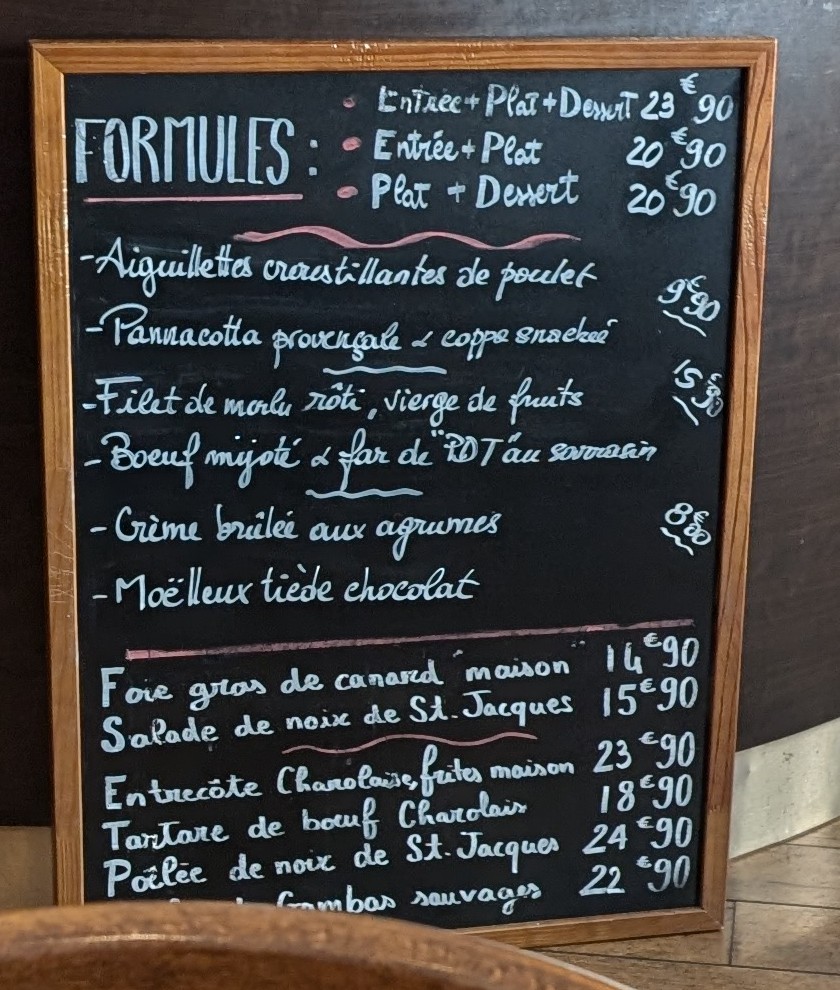 FORMULES :
• Entrée + Plat + Dessert 23€90
• Entrée + Plat 20€90
• Plat + Dessert 20€90
- Aiguillettes croustillantes de poulet
9€90
- Pannacotta provençale & coppa snackée
15€90
- Filet de morlu rôti, vierge de fruits
- Boeuf mijoté & far de "PDT" au sarrasin
- Crème brûlée aux agrumes
8€80
- Moëlleux tiède chocolat
Foie gras de canard "maison" 14€90
Salade de noix de St. Jacques 15€90
Entrecôte Charolaise, frites maison 23€90
Tartare de bœuf Charolais 18€90
Poêlée de noix de St. Jacques 24€90
Gambas sauvages 22€90